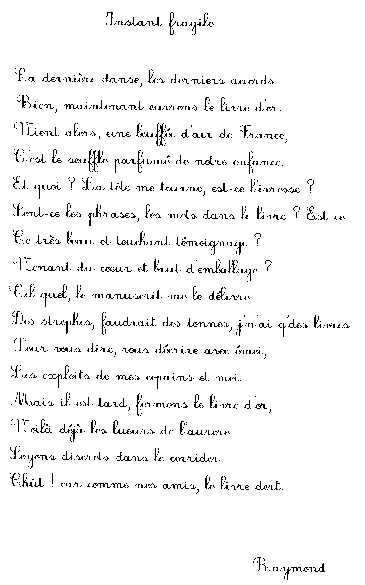 Instant fragile
La dernière danse, les derniers accords
Bien, maintenant ouvrons le livre d'or.
Vient alors, une bouffée d'air de France,
C'est le souffle parfumé de notre enfance.
Et quoi ? La tête me tourne, est-ce l'ivresse ?
Sont-ce les phrases, les mots dans le livre ? Est ce
Ce très beau et touchant témoignage ?
Venant du cœur et brut d'emballage ?
Tel quel, le manuscrit me le délivre
Des strophes, faudrait des tonnes, j'n'ai q'des livres
Pour vous dire, vous décrire avec émoi,
Les exploits de mes copains et moi.
Mais il est tard, fermons le livre d'or,
Voilà déjà les lueurs de l'aurore
Soyons discrets dans le corridor.
Chût ! car comme nos amis, le livre dort.
Raymond